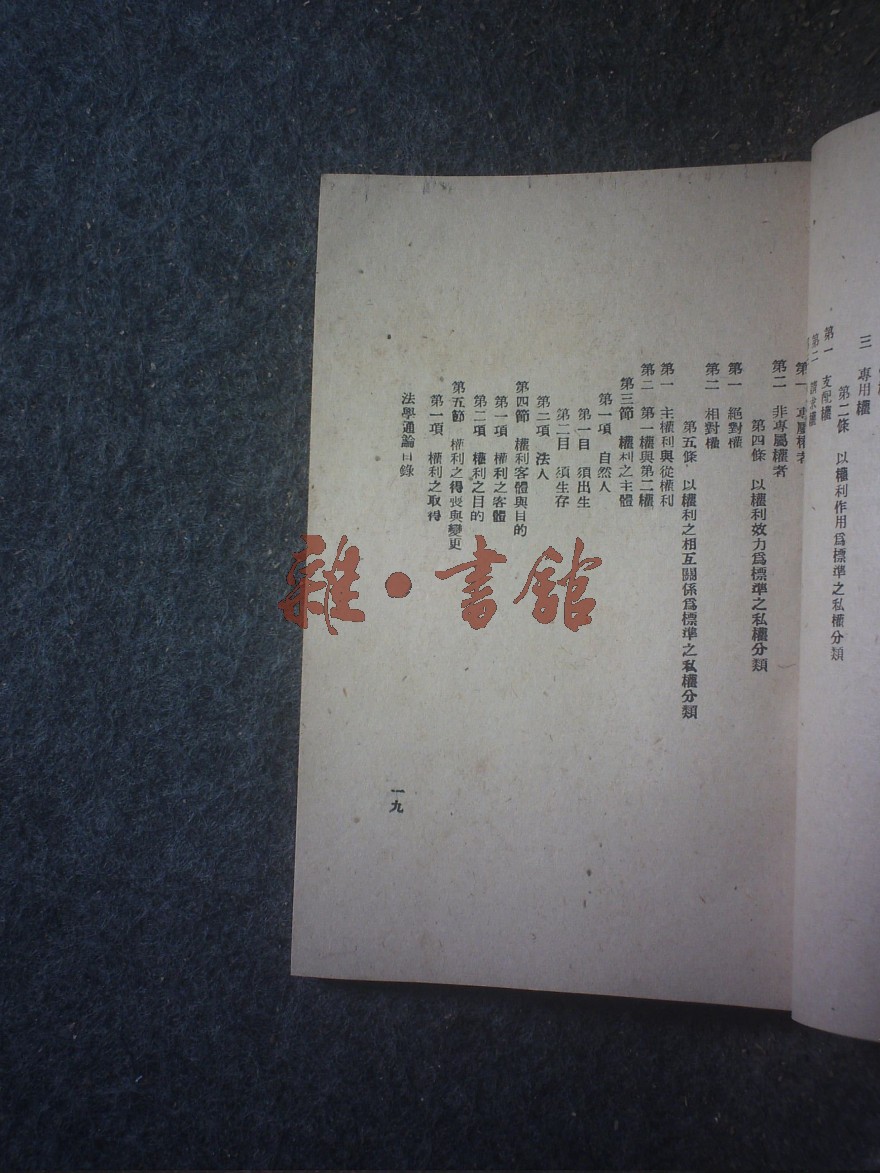 三　專用權
第二條　以權利作用爲標準之私權分類
第一　支配權
第二　請求權
第一　專屬權者
第二　非專屬權者
第四條　以權利效力爲標準之私權分類
第一　絕對權
第二　相對權
第五條　以權利之相互關係爲標準之私權分類
第一　主權利與從權利
第二　第一權與第二權
第三節　權利之主體
第一項　自然人
第一目　須出生
第二目　須生存
第二項　法人
第四節　權利客體與目的
第一項　權利之客體
第二項　權利之目的
第五節　權利之得喪與變更
第一項　權利之取得
法學通論目錄
一九
雜·書館